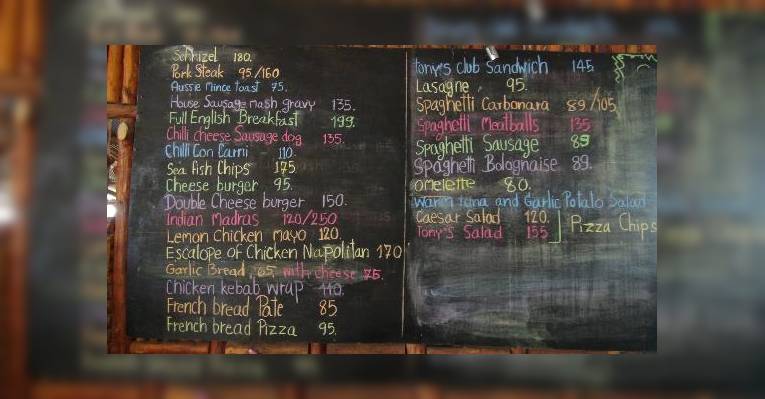 Schnizel 180.
Pork Steak 95./160
Aussie Mince toast 75.
House Sausage mash gravy 135.
Full English Breakfast 199.
Chilli cheese Sausage dog 135.
Chilli Con Carni 110.
Sea Fish Chips 175
Cheese burger 95.
Double Cheese burger 150.
Indian Madras 120/250
Lemon Chicken mayo 120.
Escalope of Chicken Napolitan 170
Garlic Bread, 65, with cheese 75.
Chicken kebab wrap 110.
French bread Pate 85
French bread Pizza 95.
Tony's Club Sandwich 145
Lasagne, 95.
Spaghetti Carbonara 89/105
Spaghetti Meatballs 135
Spaghetti Sausage 89
Spaghetti Bolognaise 89.
Omelette 80.
Warm tuna and Garlic Potato Salad
Caesar Salad 120.
Tony's Salad 155
Pizza Chips